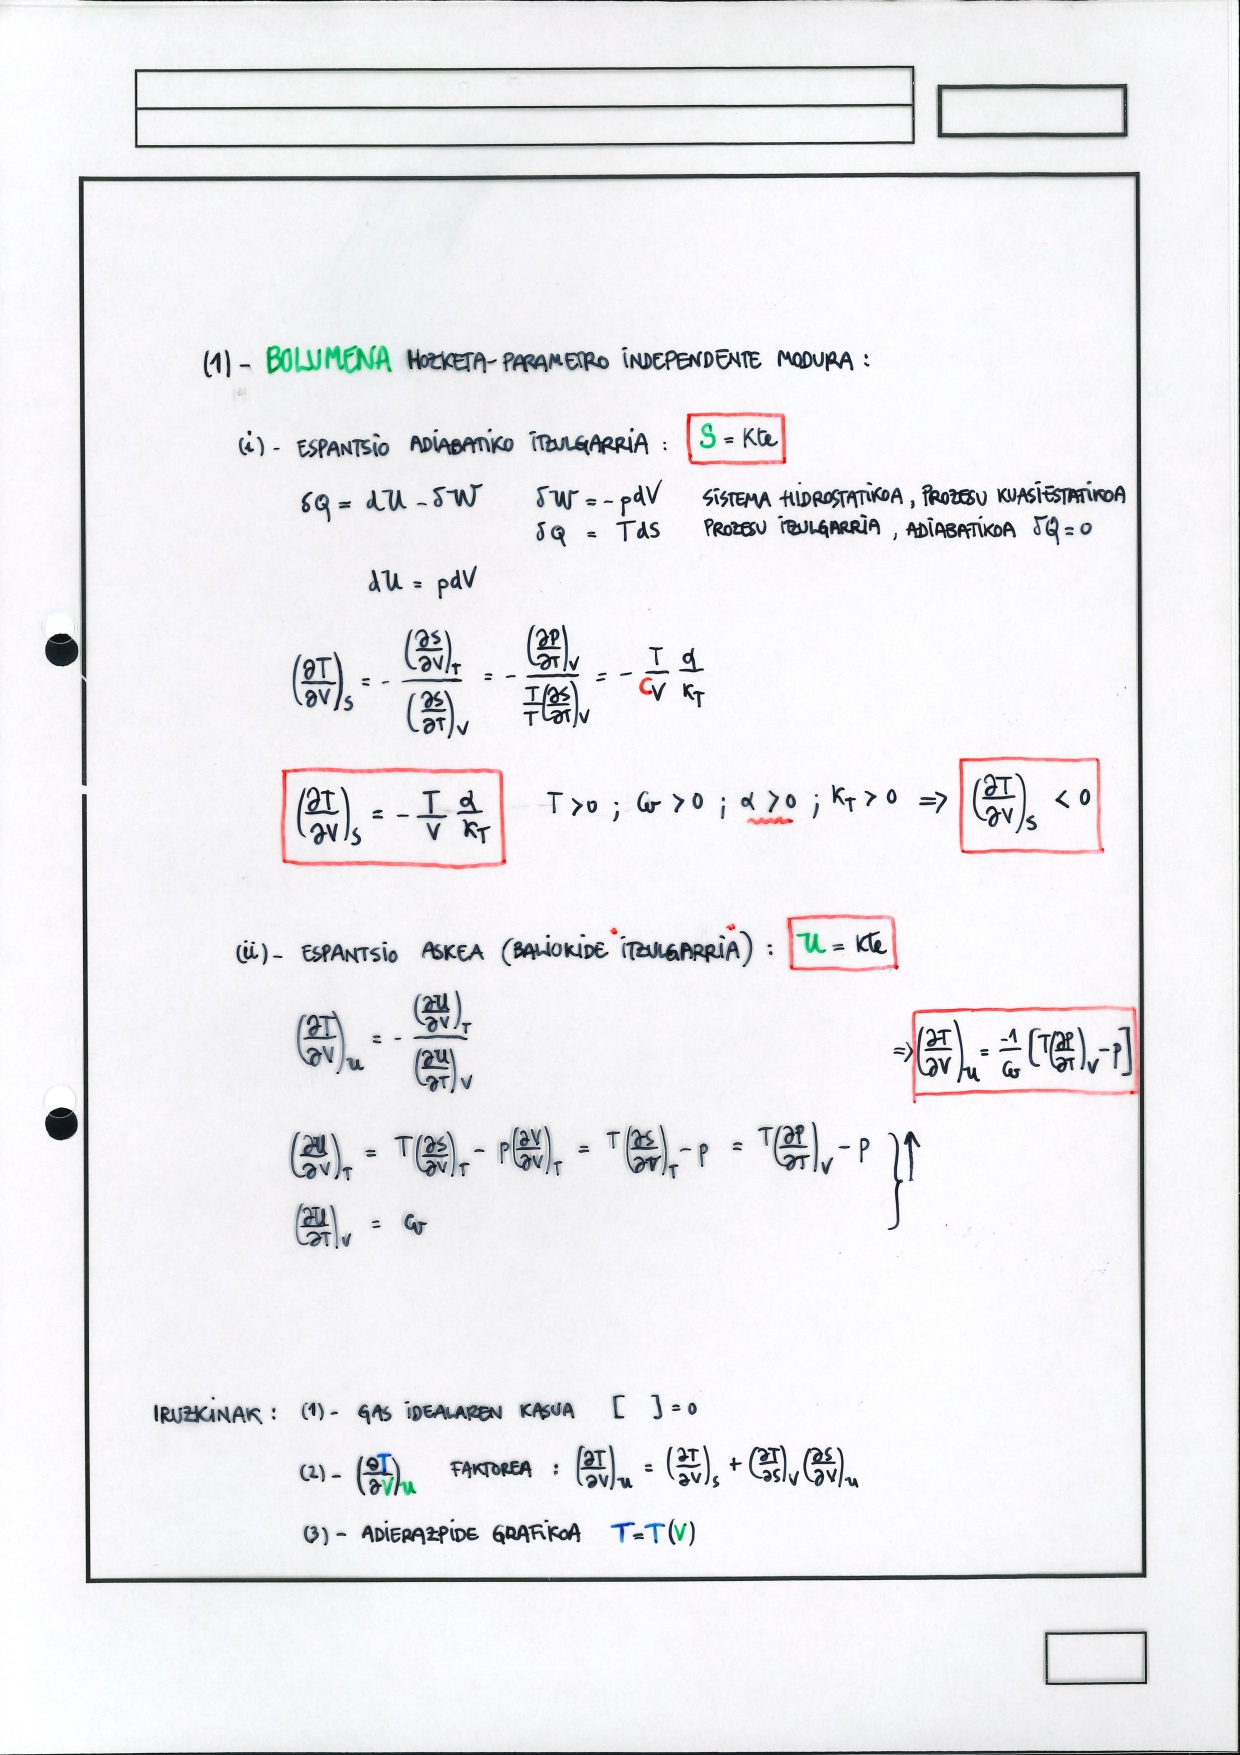 (1)- BOLUMENA HOZKETA-PARAMETRO INDEPENDENTE MODURA :
(i)- ESPANTSIO ADIABATIKO ITZULGARRIA : S = Kte
δQ = dU - δW δW = -pdV SISTEMA HIDROSTATIKOA, PROZESU KUASIESTATIKOA
δQ = TdS PROZESU ITZULGARRIA, ADIABATIKOA δQ = 0
dU = pdV
(∂T/∂V)_S = - (∂S/∂V)_T / (∂S/∂T)_V = - (∂P/∂T)_V / (T/T (∂S/∂T)_V) = - T/C_V α/K_T
(∂T/∂V)_S = - T/V α/K_T T > 0 ; Cv > 0 ; α > 0 ; K_T > 0 ⇒ (∂T/∂V)_S < 0
(ii)- ESPANTSIO ASKEA (BALIOKIDE "ITZULGARRIA") : U = Kte
(∂T/∂V)_U = - (∂U/∂V)_T / (∂U/∂T)_V ⇒ (∂T/∂V)_U = -1/Cv [T(∂P/∂T)_V - P]
(∂U/∂V)_T = T(∂S/∂V)_T - P(∂V/∂V)_T = T(∂S/∂V)_T - P = T(∂P/∂T)_V - P } ↑
(∂U/∂T)_V = Cv
IRUZKINAK : (1)- GAS IDEALAREN KASUA [ ] = 0
(2)- (∂T/∂V)_U FAKTOREA : (∂T/∂V)_U = (∂T/∂V)_S + (∂T/∂S)_V (∂S/∂V)_U
(3)- ADIERAZPIDE GRAFIKOA T=T(V)